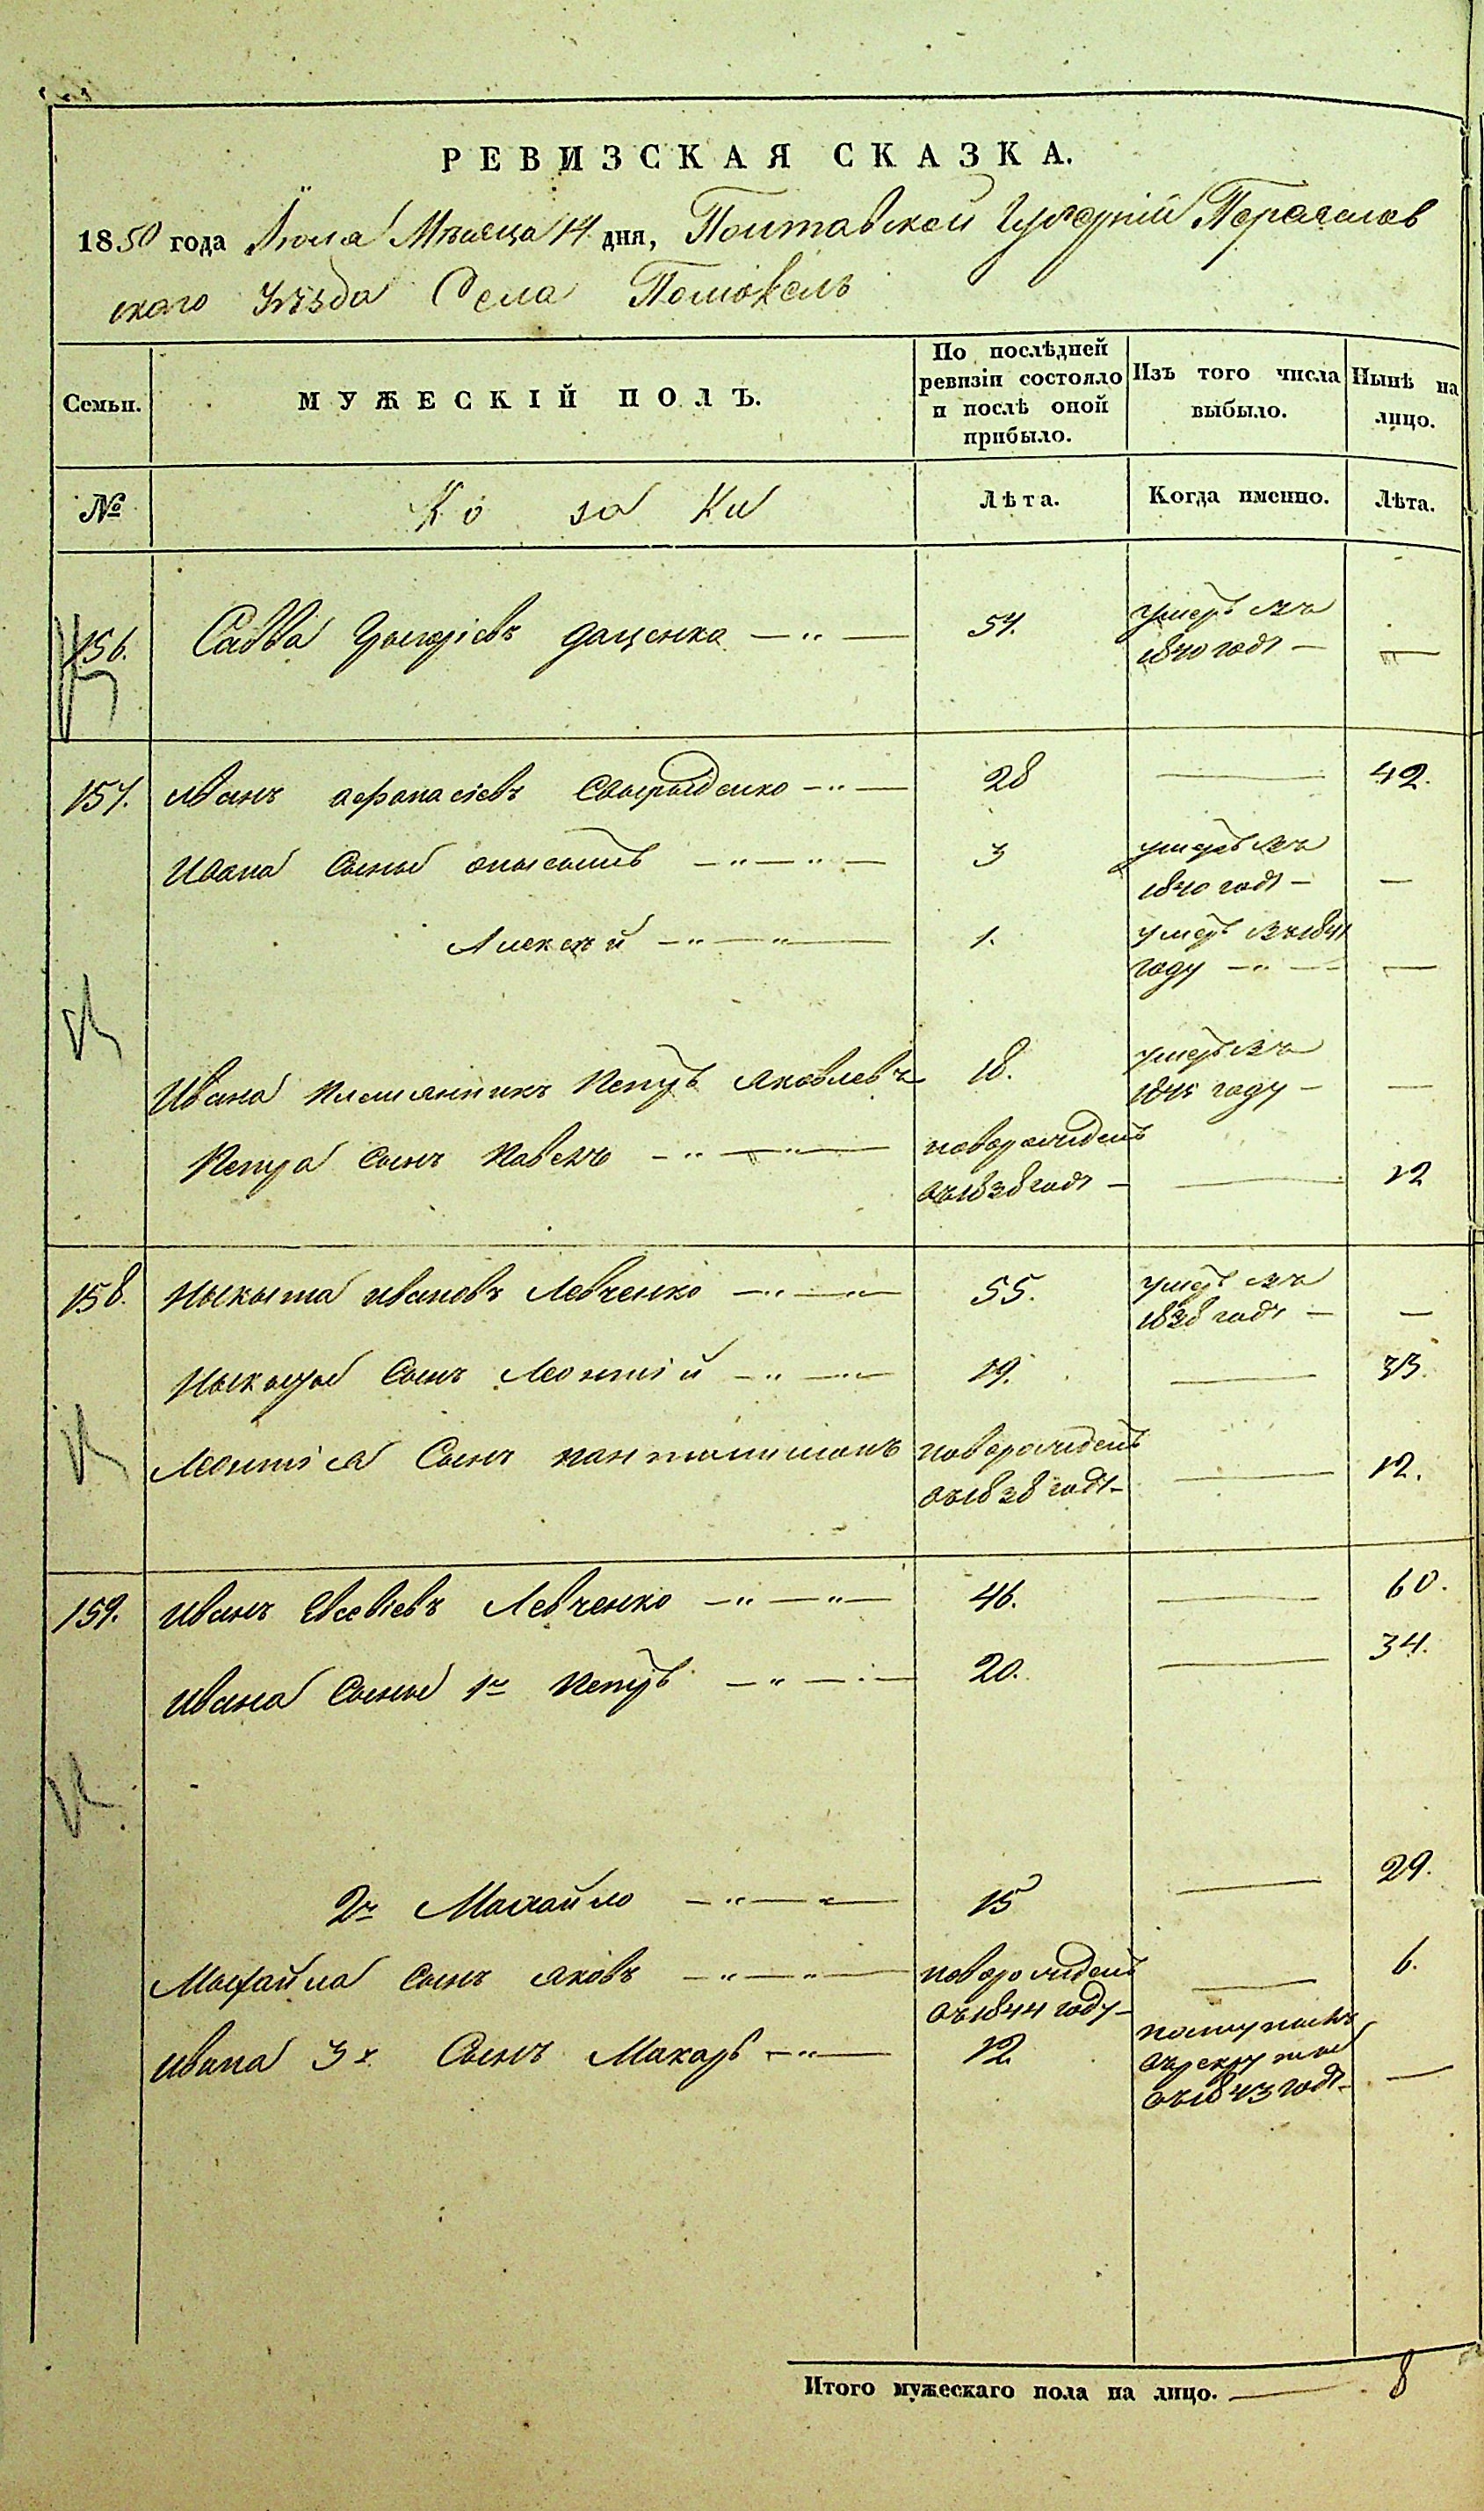 РЕВИЗСКАЯ СКАЗКА.
1850 года Июля Мѣсяца 14 дня, Полтавской Губерніи Пераяслав
скаго Уѣзда Села Помокель
Семьи. МУЖЕСКІЙ ПОЛЪ. По послѣдней ревизіи состояло и послѣ оной прибыло. Изъ того числа выбыло. Нынѣ на лицо.
№ Ко за ки Лѣта. Когда именно. Лѣта.
156. Савва Григорiевъ Даценко 54. умеръ въ
1840 годѣ —
157. Иванъ Афонасіевъ Свыриденко 28 — 42.
Ивана Сыны 3 умеръ въ
1840 годѣ — —
Алексѣй 1. умеръ въ 1841
году — —
Ивана племянникъ Петръ Яковлевъ 18. умеръ въ
1845 году — —
Петра сынъ Павелъ новорожденъ
въ 1838 годѣ — — 12
158. Ныкыта Ивановъ Левченко 55. умеръ въ
1838 годѣ — —
Ныкыты Сынъ Леонтій 19. — 33.
Леонтія Сынъ Пантилимонъ новорожденъ
въ 1838 годѣ — — 12.
159. Иванъ Евсевіевъ Левченко 46. — 60.
Ивана Сыны 1й Петръ 20. — 34.
2й Михайло 15 — 29.
Михайла сынъ Яковъ новорожденъ
въ 1844 году — — 6.
Ивана 3й Сынъ Макаръ 12 поступилъ
въ рекруты
въ 1843 годѣ — —
Итого мужескаго пола на лицо. — 8